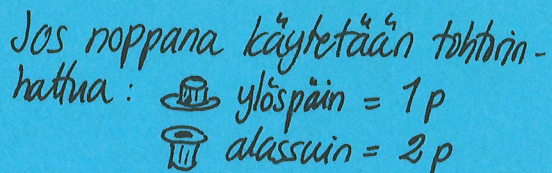 Jos noppana käytetään tohtorin-
hattua: ylöspäin = 1 p
alassuin = 2 p